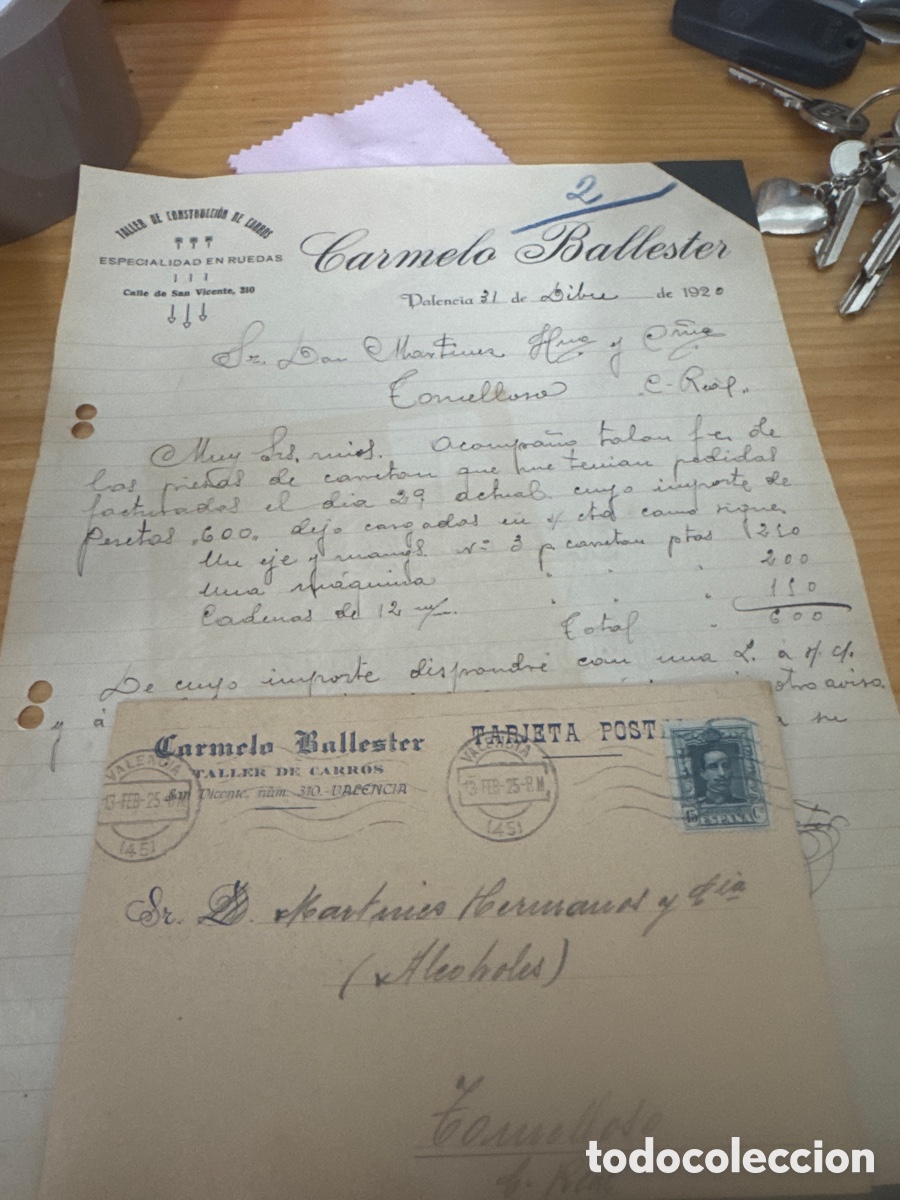 TALLER DE CONSTRUCCIÓN DE CARROS
ESPECIALIDAD EN RUEDAS
Calle de San Vicente, 310
2
Carmelo Ballester
Valencia 31 de Dibre de 1920
Sr. Don Martinez Hno y Cñia
Tomelloso C-Real
Muy Srs. mios. Acompaño talon f.c. de
las piezas de carreton que me tenian pedidas
facturadas el dia 29 actual cuyo importe de
Pesetas 600 dejo cargadas en s/ cta como sigue
Un eje y mangs. Nº 3 p carreton ptas 250
una máquina " " " 200
Cadenas de 12 m/m. " " " 150
Total " 600
De cuyo importe dispondré con una L. á s/ c/.
y á otro aviso
se
Carmelo Ballester
TALLER DE CARROS
San Vicente, núm. 310.-VALENCIA
TARJETA POST
VALENCIA
13 FEB-25-8M
(45)
VALENCIA
13 FEB-25-8M
(45)
15 ESPAÑA Cs
Sr. D. Martines Hermanos y Cia
(Alcoholes)
Tomelloso
C. Real
todocoleccion